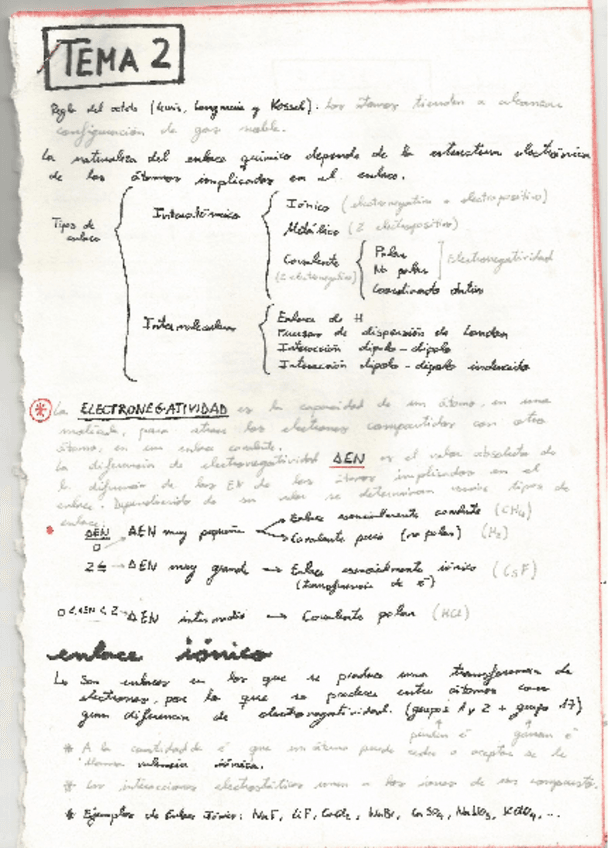 TEMA 2
Regla del octeto (Lewis, Langmuir y Kossel). Los átomos tienden a alcanzar
configuración de gas noble.
La naturaleza del enlace químico depende de la estructura electrónica
de los átomos implicados en el enlace.
Tipos de enlace
Interatómico
Iónico (electronegativo + electropositivo)
Metálico (2 electropositivos)
Covalente (2 electronegativos)
Polar
No polar
Electronegatividad
Coordinado dativo
Intermolecular
Enlace de H
Fuerzas de dispersión de London
Interacción dipolo - dipolo
Interacción dipolo - dipolo inducido
* La ELECTRONEGATIVIDAD es la capacidad de un átomo, en una
molécula, para atraer los electrones compartidos con otro
átomo, en un enlace covalente.
La diferencia de electronegatividad ΔEN es el valor absoluto de
la diferencia de las EN de los átomos implicados en el
enlace. Dependiendo de su valor se determinan varios tipos de
enlace:
ΔEN
0 → ΔEN muy pequeña
Enlace esencialmente covalente (CH4)
Covalente puro (no polar) (H2)
2 ≤ → ΔEN muy grande → Enlace esencialmente iónico (CsF)
(transferencia de e⁻)
0 < ΔEN < 2 → ΔEN intermedio → Covalente polar (HCl)
enlace iónico
↳ Son enlaces en los que se produce una transferencia de
electrones, por lo que se produce entre átomos con
gran diferencia de electronegatividad. (grupos 1 y 2 + grupo 17)
pierden e⁻ ganan e⁻
* A la cantidad de e⁻ que un átomo puede ceder o aceptar se le
llama valencia iónica.
* Las interacciones electrostáticas unen a los iones de un compuesto.
* Ejemplos de Enlace Iónico: NaF, LiF, NaBr, CaSO4, ...